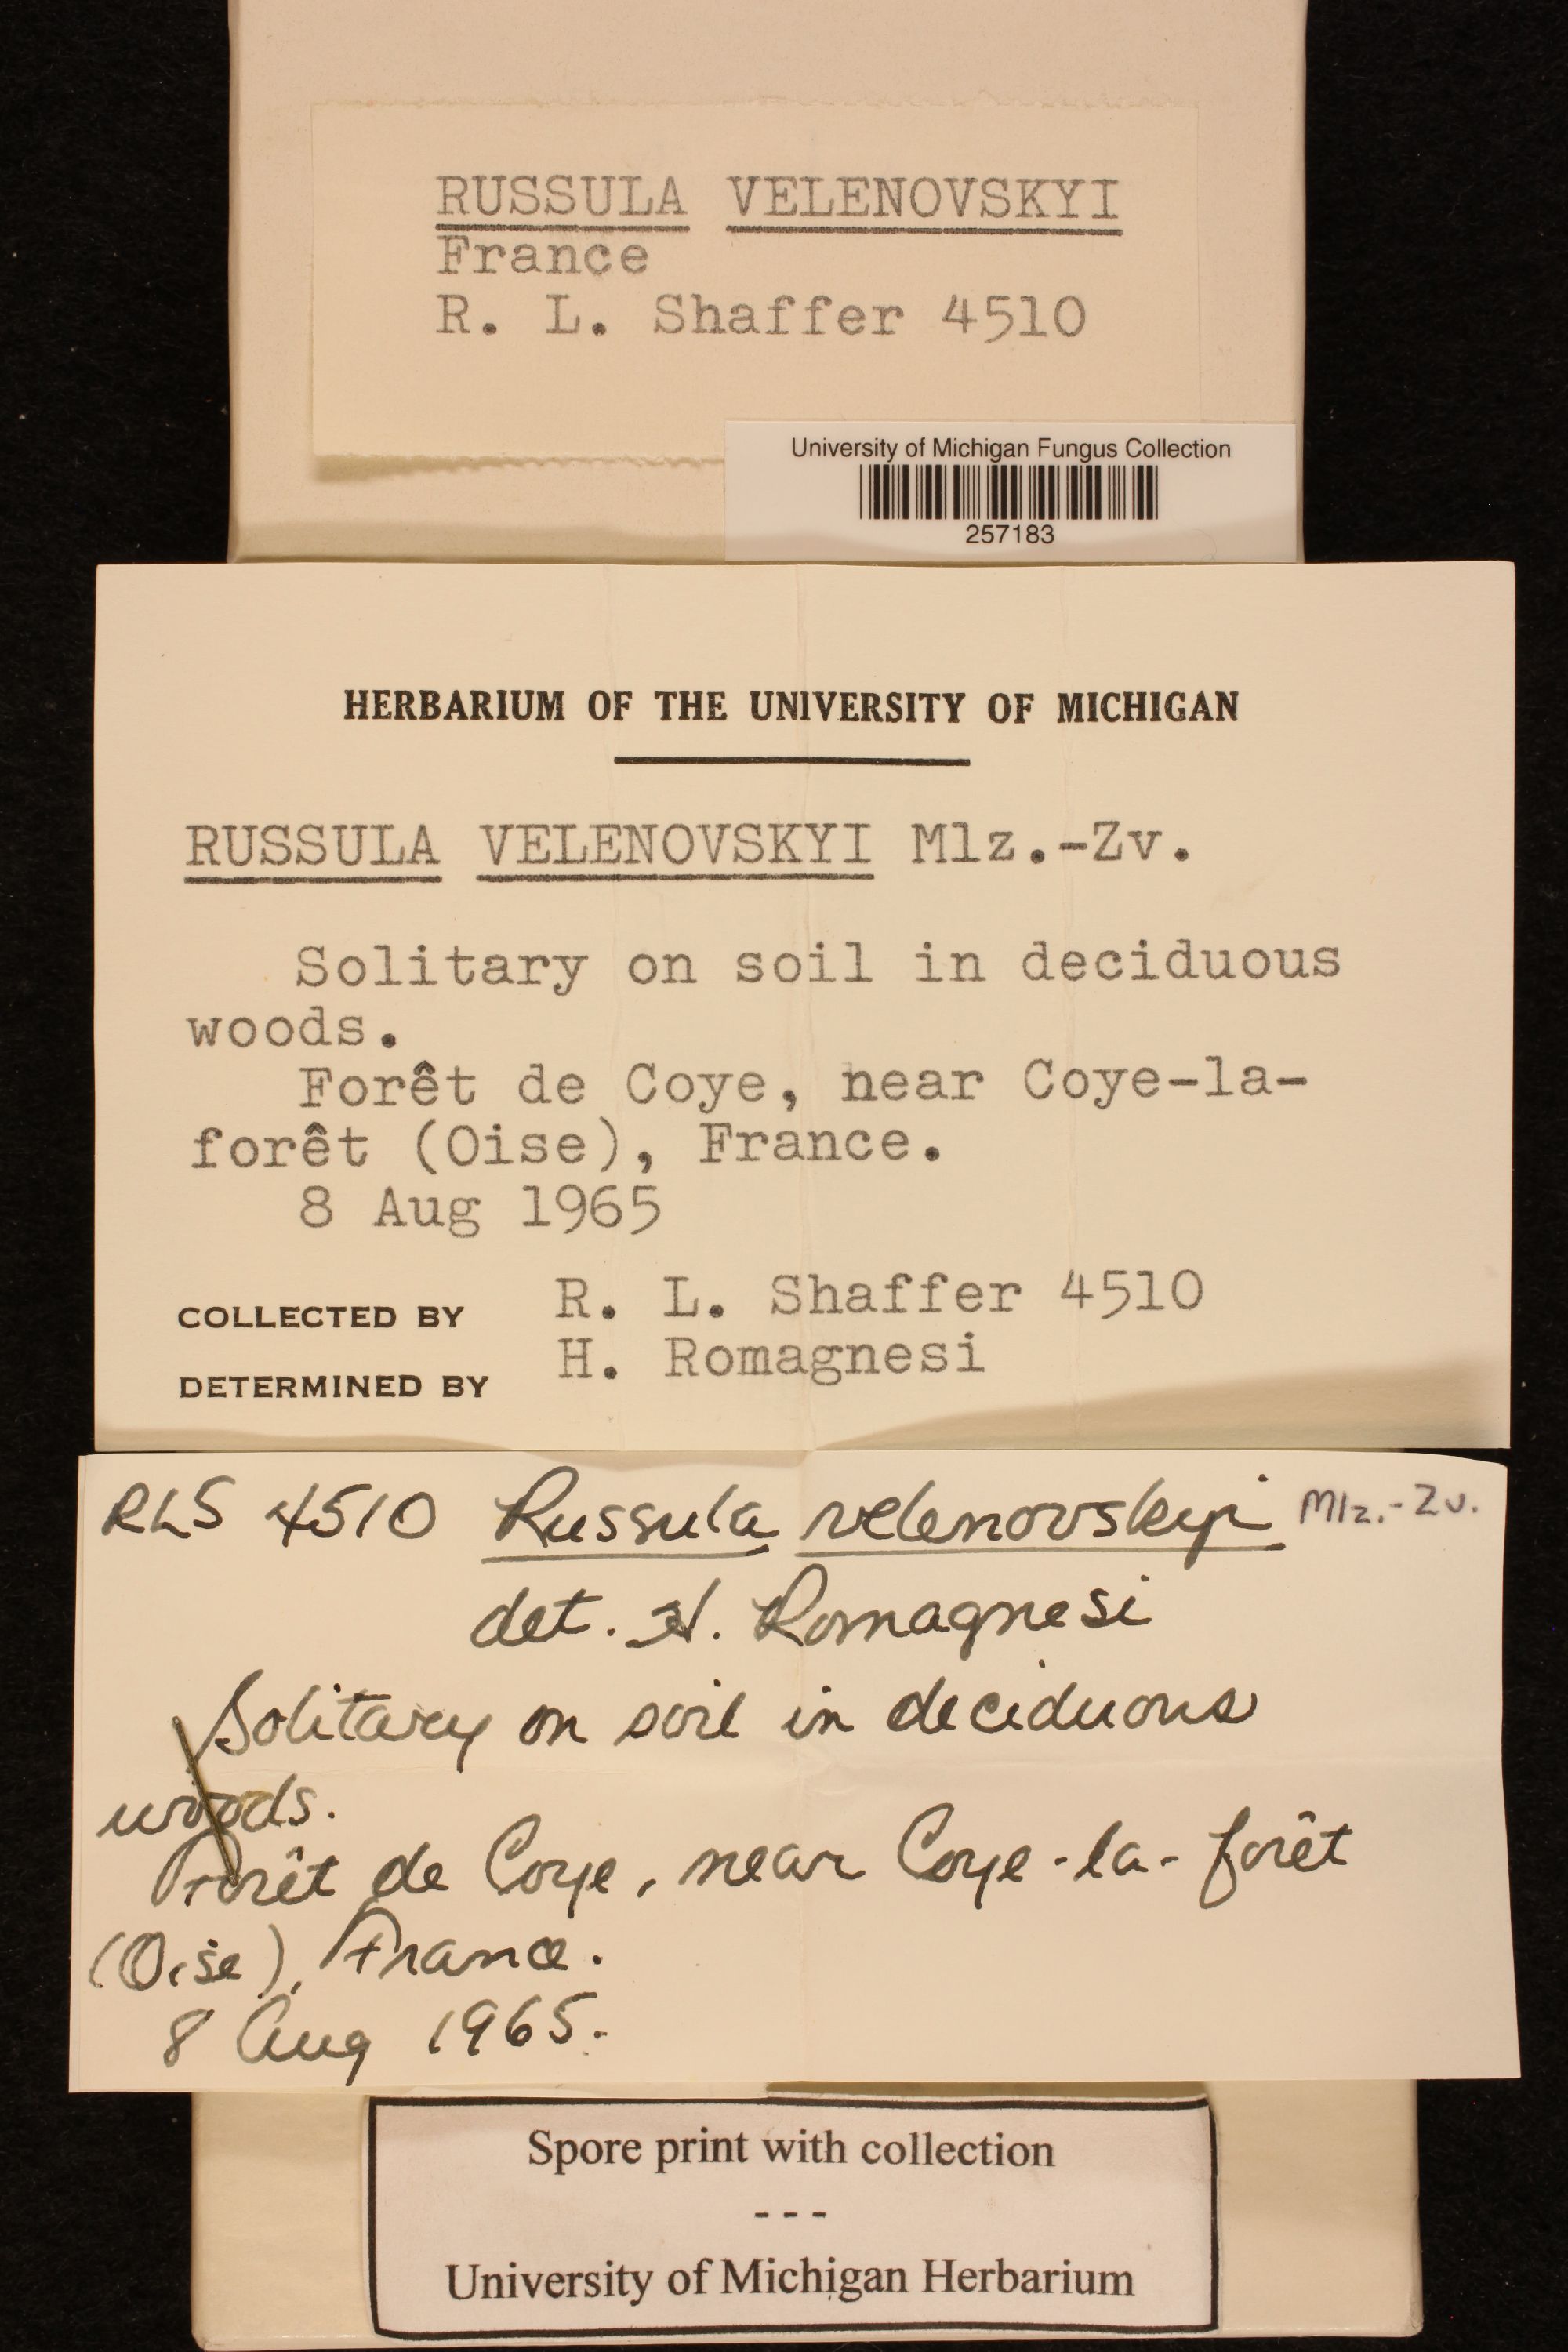 RUSSULA VELENOVSKYI
France
R. L. Shaffer 4510
University of Michigan Fungus Collection
257183
HERBARIUM OF THE UNIVERSITY OF MICHIGAN
RUSSULA VELENOVSKYI Mlz.-Zv.
Solitary on soil in deciduous
woods.
Forêt de Coye, near Coye-la-
forêt (Oise), France.
8 Aug 1965
COLLECTED BY R. L. Shaffer 4510
DETERMINED BY H. Romagnesi
RLS 4510 Russula velenovskyi Mlz.-Zv.
det. H. Romagnesi
Solitary on soil in deciduous
woods.
Forêt de Coye, near Coye-la-forêt
(Oise), France.
8 Aug 1965.
Spore print with collection
---
University of Michigan Herbarium